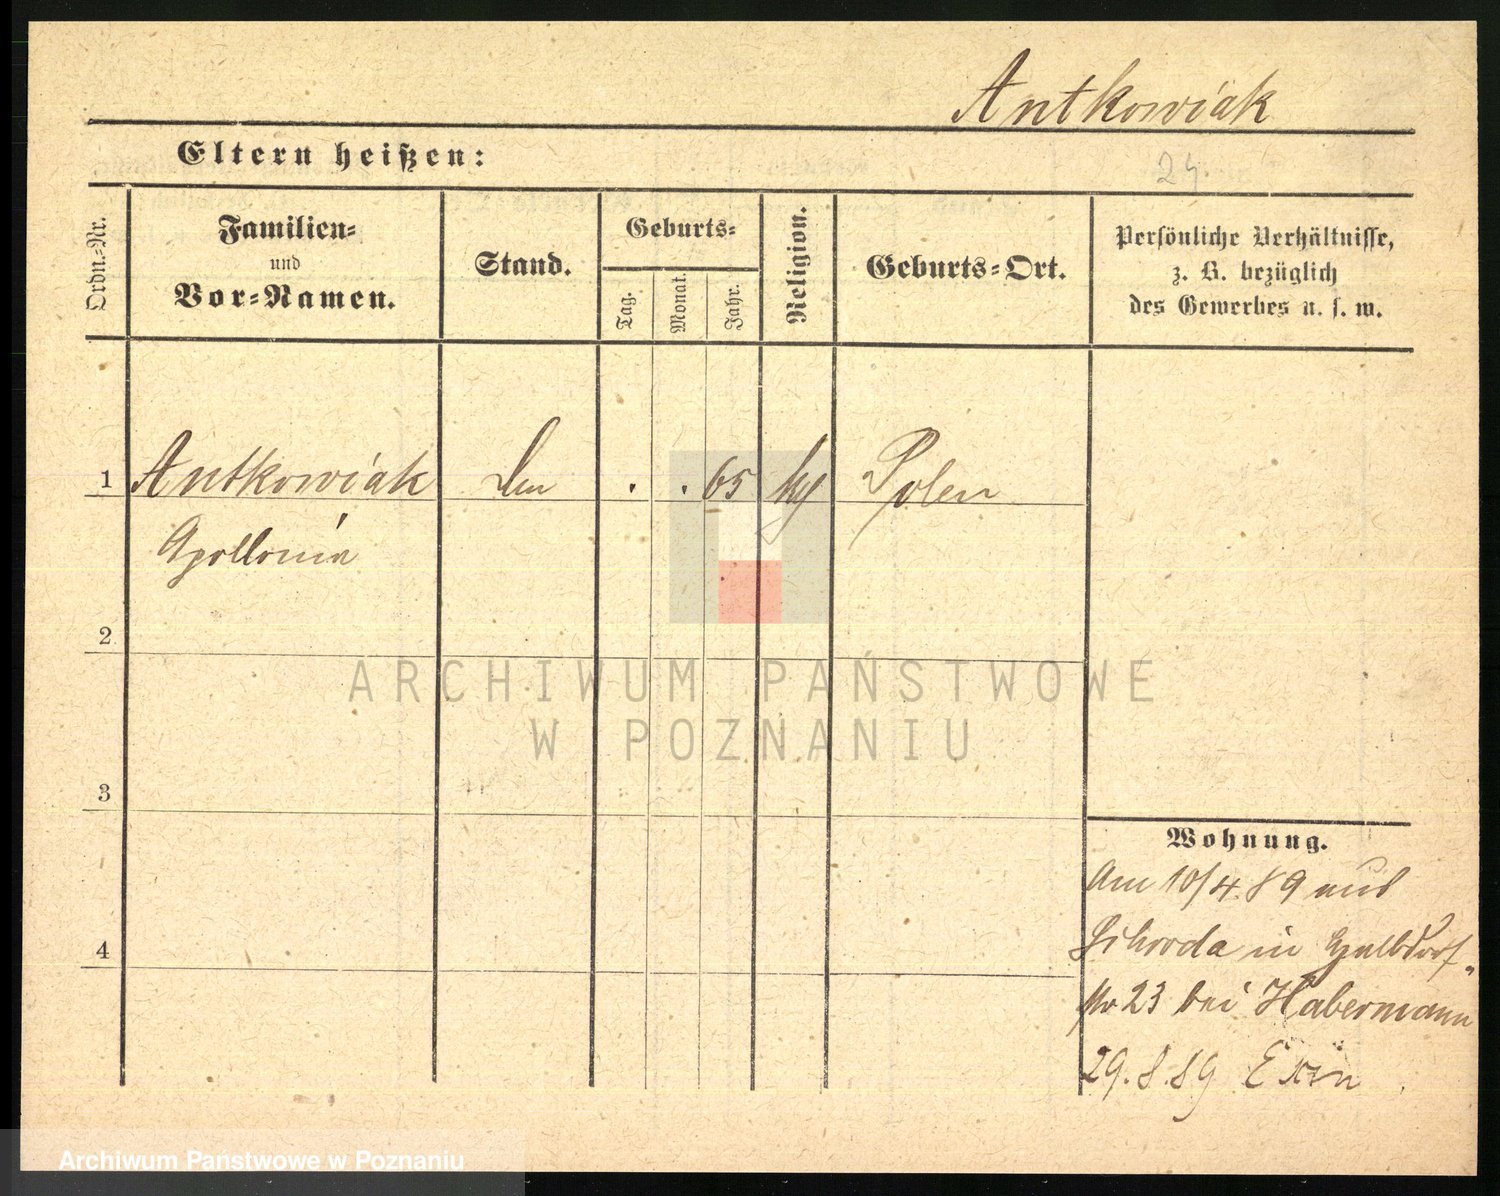 Antkowiak
Eltern heißen:
24.
Ordn.-Nr.
Familien-
und
Vor-Namen.
Stand.
Geburts-
Tag.
Monat.
Jahr.
Religion.
Geburts-Ort.
Persönliche Verhältnisse,
z. B. bezüglich
des Gewerbes u. s. w.
1 Antkowiak . . 65 kg Polen
Apollonia
2
3
4
Wohnung.
Am 10/4.89 aus
in Halbdorf-
str 23 bei Habermann
29.8.89 Exin
ARCHIWUM PAŃSTWOWE
W POZNANIU
Archiwum Państwowe w Poznaniu